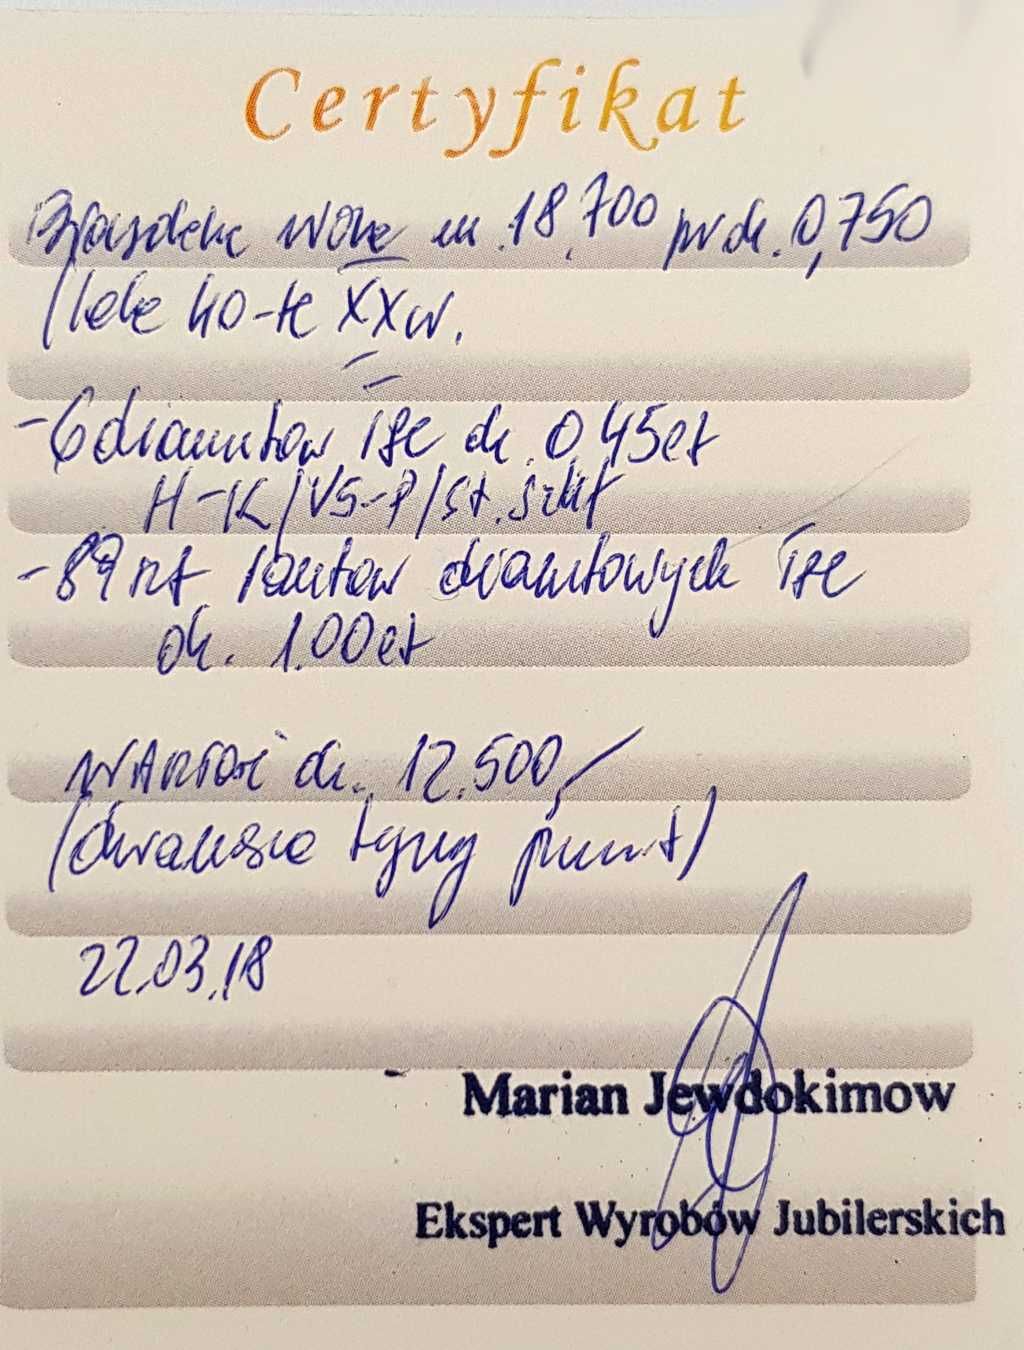 Certyfikat
Bransoletka m. 18,700 pr. ok. 0,750
/lata 40-te XXw.
- 6 diamentów łże ok. 0,45ct
H-K/VS-P/st. szlif
- 89 szt. rautów diamentowych łże
ok. 1.00ct
Wartość ok. 12.500,-
(dwanaście tysięcy pięćset)
22.03.18
Marian Jewdokimow
Ekspert Wyrobów Jubilerskich